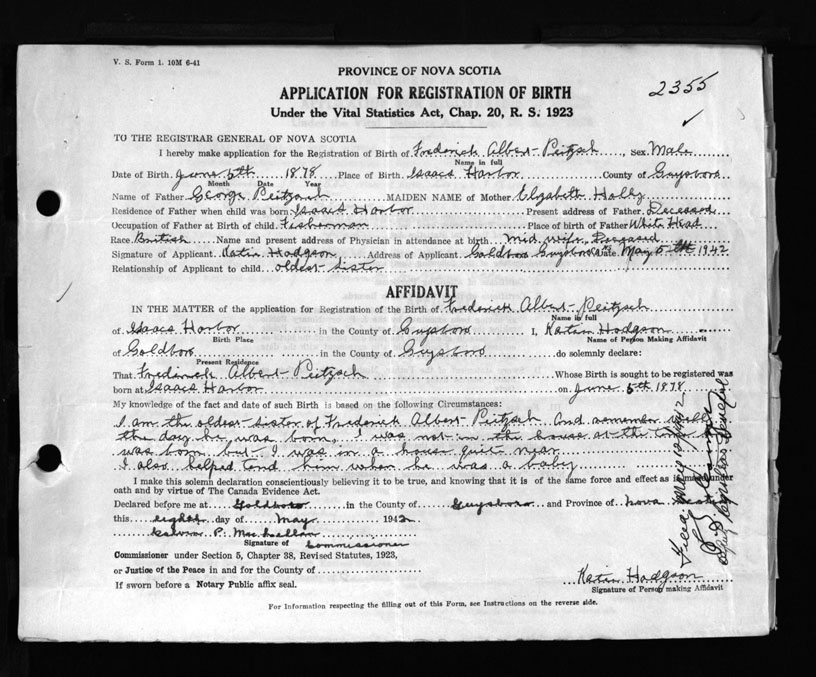 V. S. Form 1. 10M 6-41
PROVINCE OF NOVA SCOTIA
2355
APPLICATION FOR REGISTRATION OF BIRTH
Under the Vital Statistics Act, Chap. 20, R. S. 1923
TO THE REGISTRAR GENERAL OF NOVA SCOTIA
I hereby make application for the Registration of Birth of Frederick Albert Peitzsch, Sex Male
Name in full
Date of Birth June 5th 1878 Place of Birth Isaacs Harbor County of Guysboro
Month Date Year
Name of Father George Peitzsch MAIDEN NAME of Mother Elizabeth
Residence of Father when child was born Isaacs Harbor Present address of Father Deceased
Occupation of Father at Birth of child Fisherman Place of birth of Father White Head
Race British Name and present address of Physician in attendance at birth mid wife Deceased
Signature of Applicant Hodgson Address of Applicant Goldboro Guysboro Date May 5th 1942
Relationship of Applicant to child oldest sister
AFFIDAVIT
IN THE MATTER of the application for Registration of the Birth of Frederick Albert Peitzsch
Name in full
of Isaacs Harbor in the County of Guysboro I, Hodgson
Birth Place Name of Person Making Affidavit
of Goldboro in the County of Guysboro do solemnly declare:
Present Residence
That Frederick Albert Peitzsch Whose Birth is sought to be registered was
born at Isaacs Harbor on June 5th 1878
My knowledge of the fact and date of such Birth is based on the following Circumstances:
I am the oldest sister of Frederick Albert Peitzsch And remember well
the day he was born, I was not in the house at the time he
was born but I was in a house quit near
I also helped tend him when he was a baby
I make this solemn declaration conscientiously believing it to be true, and knowing that it is of the same force and effect as if made under
oath and by virtue of The Canada Evidence Act.
Declared before me at Goldboro in the County of Guysboro and Province of Nova Scotia
this eighth day of May 1942
P. MacLellan
Signature of Commissioner
Commissioner under Section 5, Chapter 38, Revised Statutes, 1923,
or Justice of the Peace in and for the County of
If sworn before a Notary Public affix seal.
Hodgson
Signature of Person making Affidavit
For Information respecting the filling out of this Form, see Instructions on the reverse side.
Deputy Registrar General